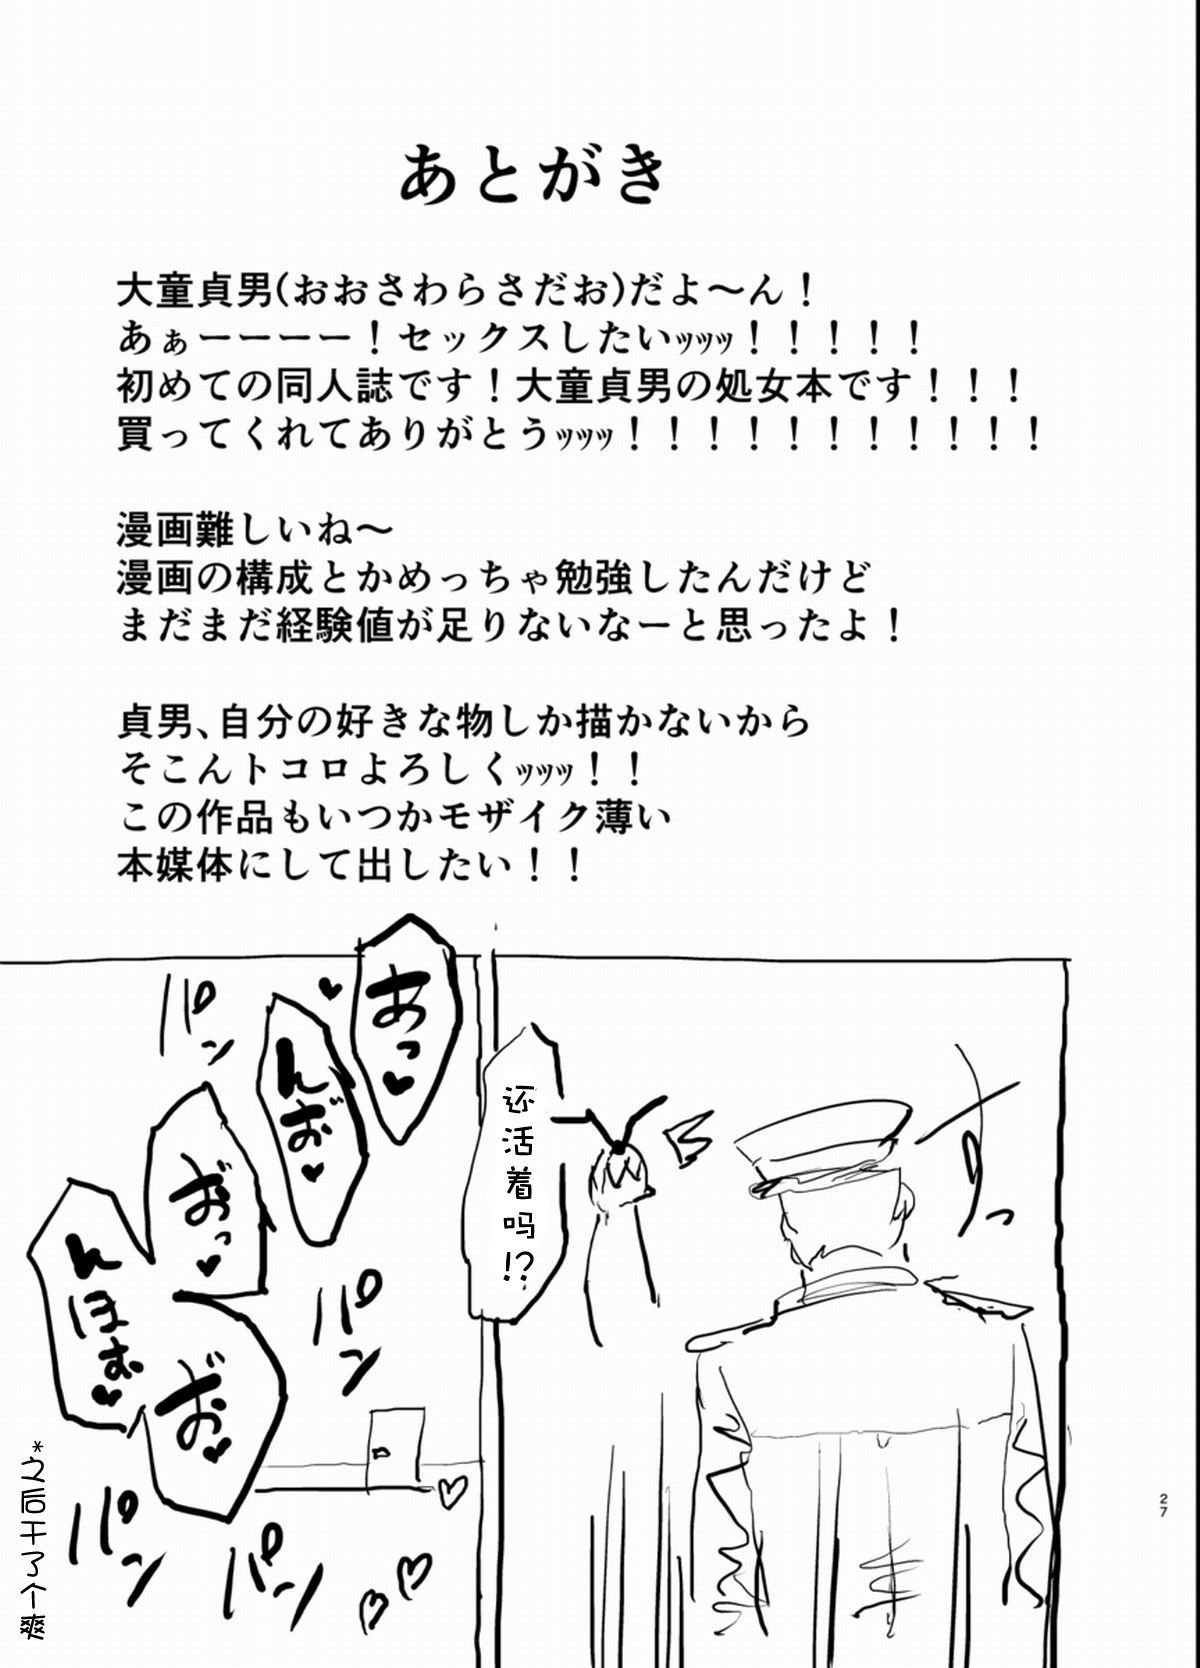 あとがき
大童貞男(おおさわらさだお)だよ～ん！
あぁーーーー！セックスしたいッッッ！！！！！
初めての同人誌です！大童貞男の処女本です！！！
買ってくれてありがとうッッッ！！！！！！！！！！！
漫画難しいね～
漫画の構成とかめっちゃ勉強したんだけど
まだまだ経験値が足りないなーと思ったよ！
貞男、自分の好きな物しか描かないから
そこんトコロよろしくッッッ！！
この作品もいつかモザイク薄い
本媒体にして出したい！！
还活着吗!?
あっ♥
んお゛♥
お゛っ♥
お゛♥
んほお♥
パン
パン
パン
パン
*之后干了个爽
27